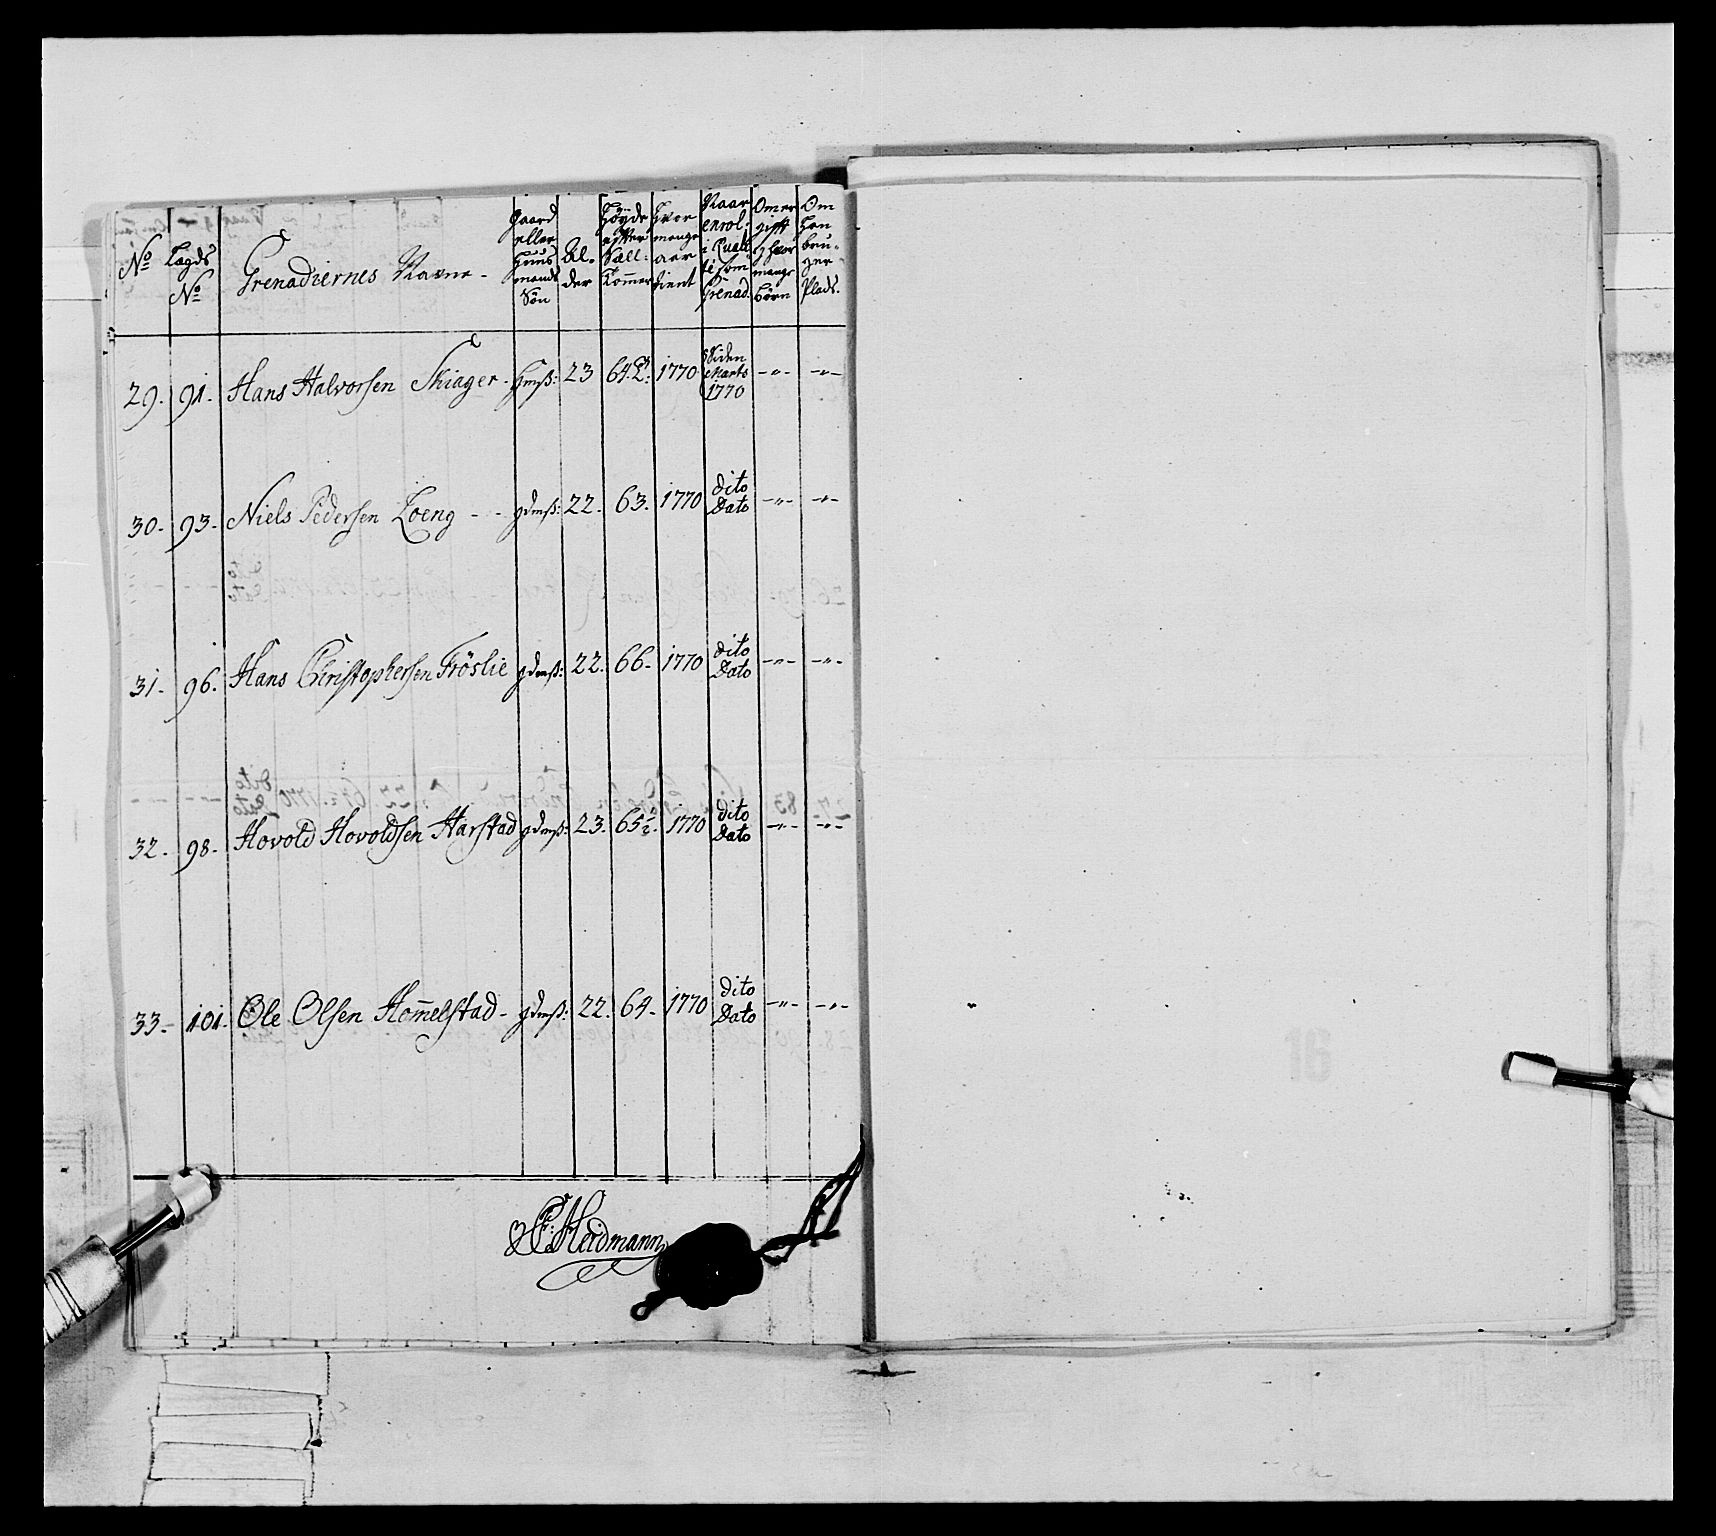 No
Lægds No
Grenadiernes Navne -
Gaard eller Huusmands Søn
Alder
Høyde efter Sæll: Kommer
Hvor mange aar tient
Naar enrol: i Qualité som Grenad.
Om er gift og hvor mange børn
Om han bruger Plads.
29. 91. Hans Halvorsen Skiager - Hmß: 23 64 1770 Siden Marts 1770 -"- -"-
30. 93. Niels Pedersen Loeng - - gdmß: 22. 63. 1770 dito Dato -"- -"-
31. 96. Hans Christophersen Fröslie gdmß: 22. 66. 1770 dito Dato -"- -"-
32. 98. Hovold Hovoldsen Harstad gdmß: 23. 65½. 1770 dito Dato -"- -"-
33. 101. Ole Olsen Hom̄elstad - gdmß: 22. 64. 1770 dito Dato -"- -"-
Heidmann
16